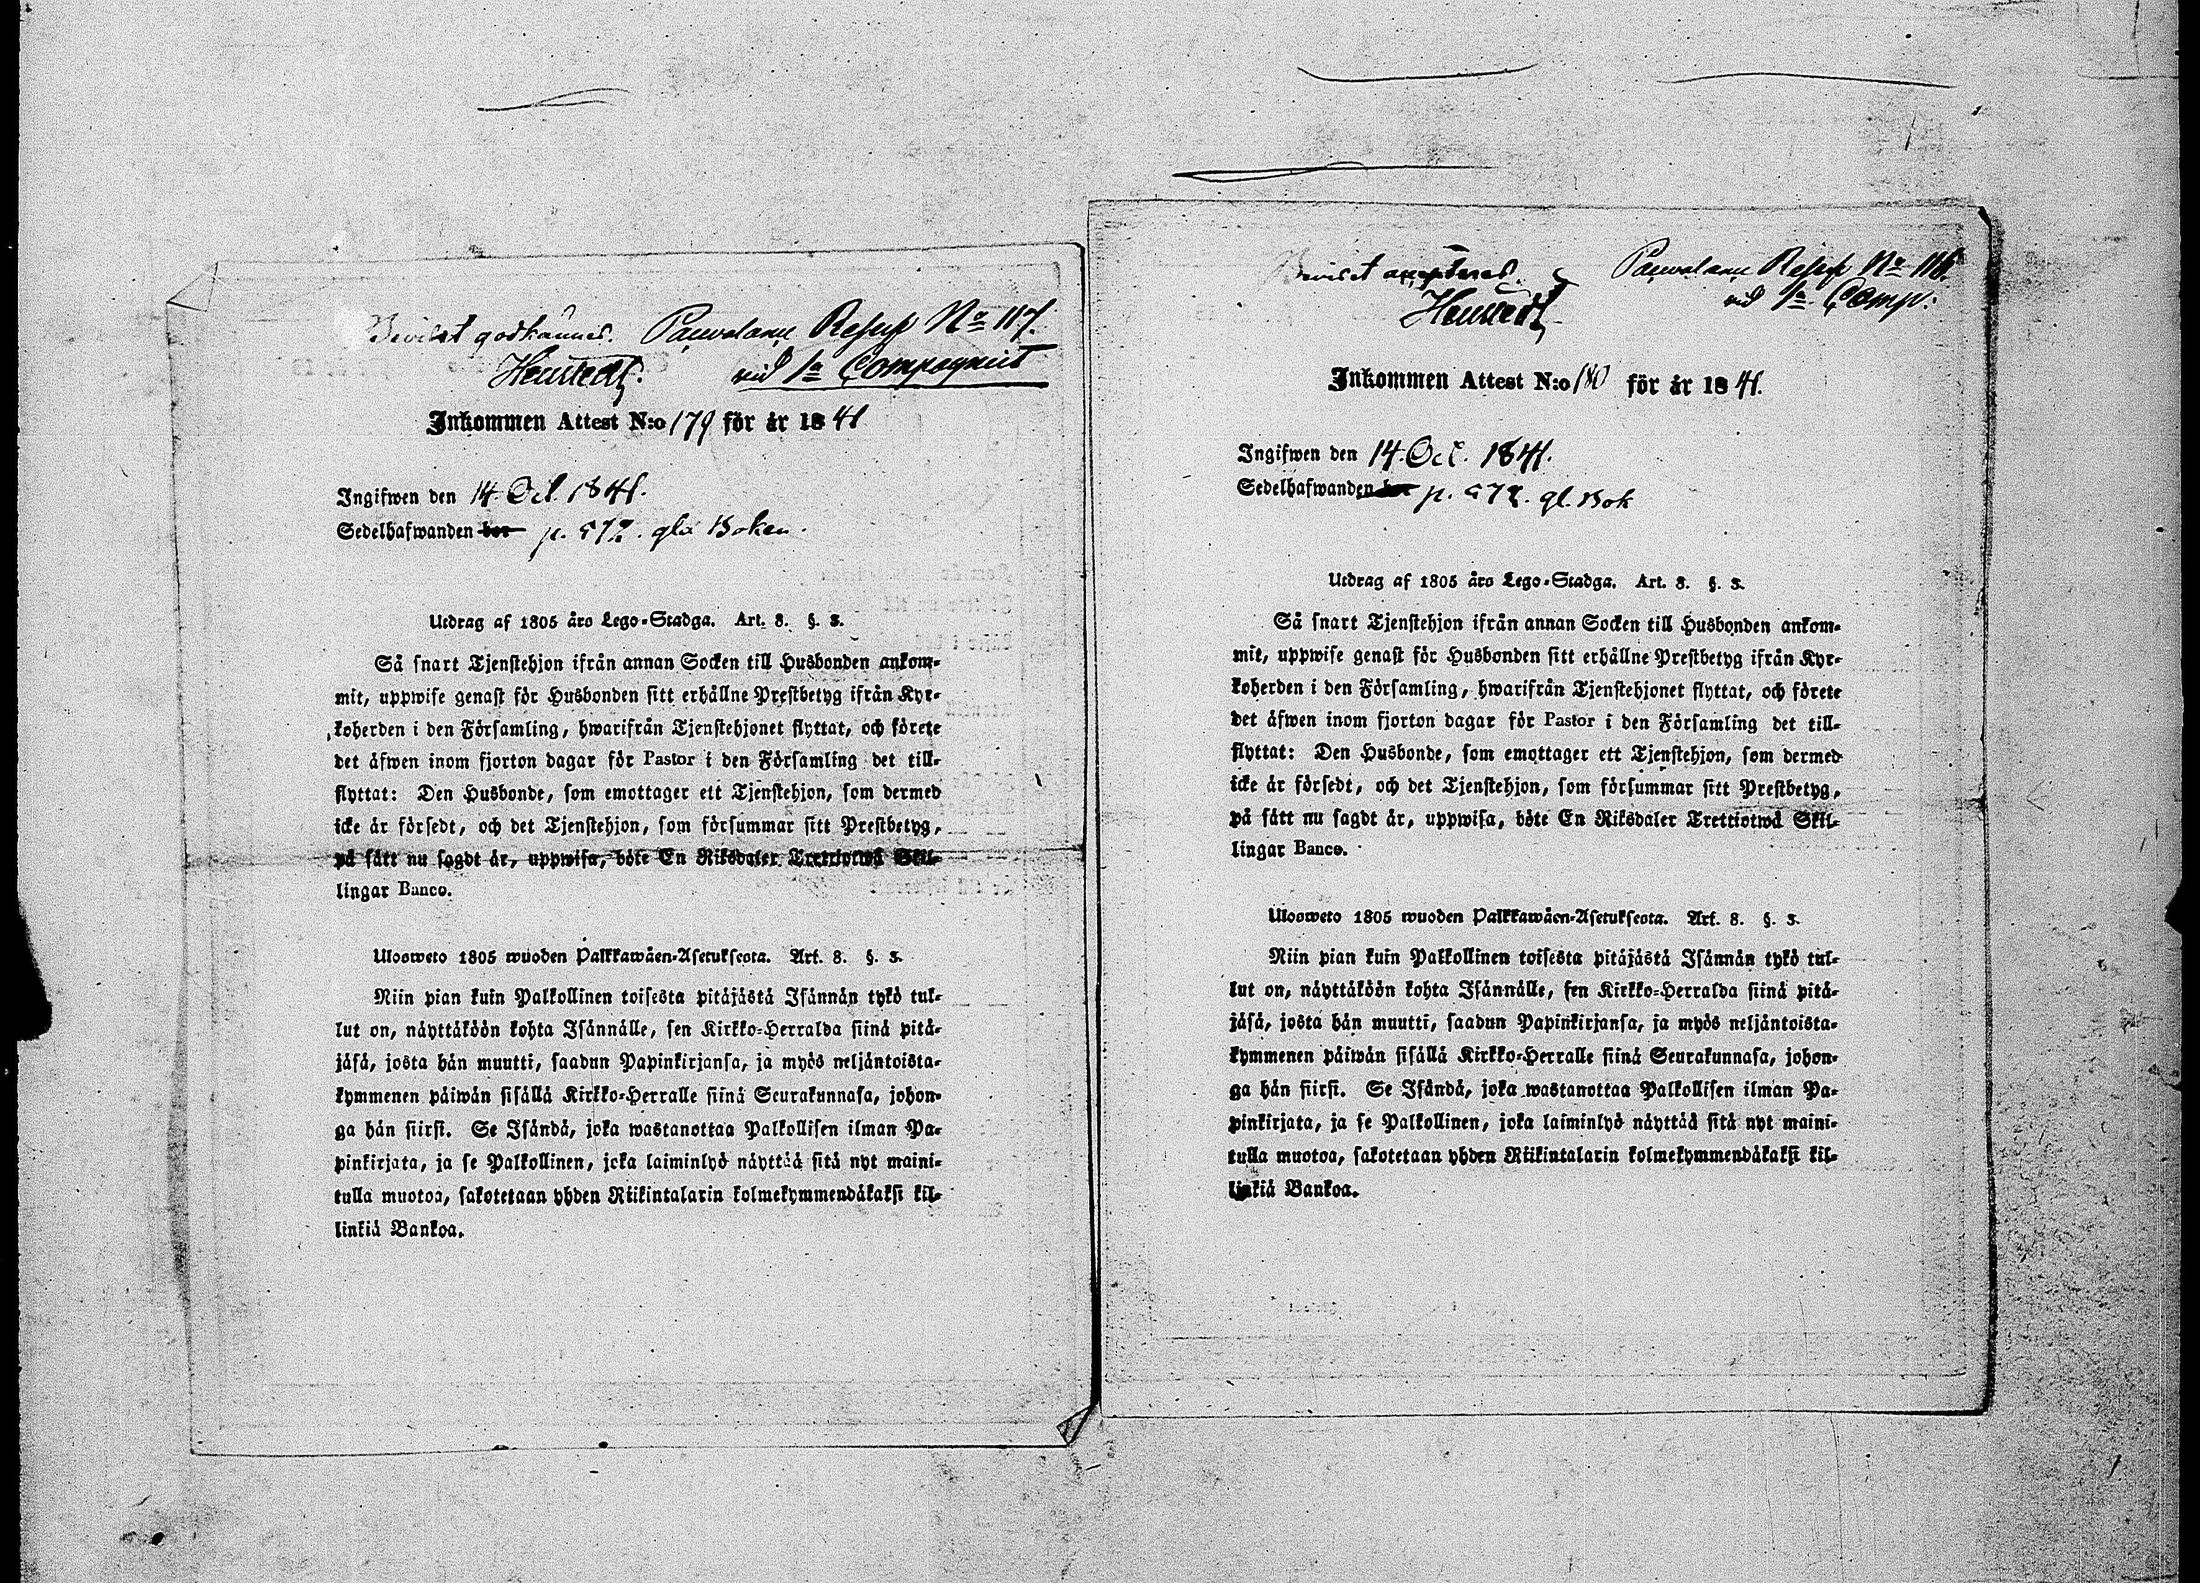 Beviset godkännes. Paevalaau Reserf No 117.
Henstedt. vid 1a Compagniet
Inkommen Attest N:o 179 för år 1841
Ingifwen den 14. Oct. 1841.
Sedelhafwanden bor p. 572. gla Boken.
Utdrag af 1805 års Lego-Stadga. Art. 8. §. 3.
Så snart Tjenstehjon ifrån annan Socken till Husbonden ankom-
mit, uppwise genast för Husbonden sitt erhållne Prestbetyg ifrån Kyr-
koherden i den Församling, hwarifrån Tjenstehjonet flyttat, och förete
det äfwen inom fjorton dagar för Pastor i den Församling det till-
flyttat: Den Husbonde, som emottager ett Tjenstehjon, som dermed
icke är försedt, och det Tjenstehjon, som försummar sitt Prestbetyg,
på sätt nu sagdt är, uppwisa, böte En Riksdaler Trettiotwå Skil-
lingar Banco.
Ulosweto 1805 wuoden Palkkawäen-Asetuksesta. Art. 8. §. 3.
Niin pian kuin Palkollinen toisesta pitäjästä Isännän tykö tul-
lut on, näyttäköön kohta Isännälle, sen Kirkko-Herralda siinä pitä-
jäsä, josta hän muutti, saadun Papinkirjansa, ja myös neljäntoista-
kymmenen päiwän sisällä Kirkko-Herralle siinä Seurakunnasa, johon-
ga hän siirsi. Se Isändä, joka wastanottaa Palkollisen ilman Pa-
pinkirjata, ja se Palkollinen, joka laiminlyö näyttää sitä nyt maini-
tulla muotoa, sakotetaan yhden Riikintalarin kolmekymmendäkaksi kil-
linkiä Bankoa.
Beviset accepteras. Paevalaau Reserf No 116.
Henstedt vid 1a Comp:
Inkommen Attest N:o 180 för år 1841.
Ingifwen den 14. Oct. 1841.
Sedelhafwanden bor p. 572. gl. Bok
Utdrag af 1805 års Lego-Stadga. Art. 8. §. 3.
Så snart Tjenstehjon ifrån annan Socken till Husbonden ankom-
mit, uppwise genast för Husbonden sitt erhållne Prestbetyg ifrån Kyr-
koherden i den Församling, hwarifrån Tjenstehjonet flyttat, och förete
det äfwen inom fjorton dagar för Pastor i den Församling det till-
flyttat: Den Husbonde, som emottager ett Tjenstehjon, som dermed
icke är försedt, och det Tjenstehjon, som försummar sitt Prestbetyg,
på sätt nu sagdt är, uppwisa, böte En Riksdaler Trettiotwå Skil-
lingar Banco.
Ulosweto 1805 wuoden Palkkawäen-Asetuksesta. Art. 8. §. 3.
Niin pian kuin Palkollinen toisesta pitäjästä Isännän tykö tul-
lut on, näyttäköön kohta Isännälle, sen Kirkko-Herralda siinä pitä-
jäsä, josta hän muutti, saadun Papinkirjansa, ja myös neljäntoista-
kymmenen päiwän sisällä Kirkko-Herralle siinä Seurakunnasa, johon-
ga hän siirsi. Se Isändä, joka wastanottaa Palkollisen ilman Pa-
pinkirjata, ja se Palkollinen, joka laiminlyö näyttää sitä nyt maini-
tulla muotoa, sakotetaan yhden Riikintalarin kolmekymmendäkaksi kil-
linkiä Bankoa.